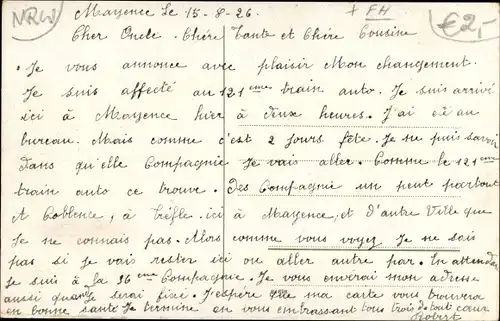 NRW
Mayence le 15-8-26.
+ FH
€2,-
Cher Oncle. Chère Tante et Chère Cousine
. Je vous annonce avec plaisir Mon changement.
Je suis affecté au 121eme train auto. Je suis arrivé
ici à Mayence hier à deux heures. J'ai été au
bureau. Mais comme c'est 2 jours fête. Je ne puis savoir
dans qu'elle Compagnie Je vais aller. Comme le 121eme
train auto ce trouve. Des Compagnie un peut partout
A Coblence, à Trèfle. ici à Mayence, et d'autre Ville que
Je ne connais pas. Alors comme vous voyez Je ne sais
pas si je vais rester ici ou aller autre par. En attendan
Je suis à la 16eme Compagnie. Je vous envirai mon adresse
aussi quand Je serai fixé. J'espère q'lle ma carte vous trouvera
en bonne santé Je termine en vous embrassant tous trois de tout cœur
Robert